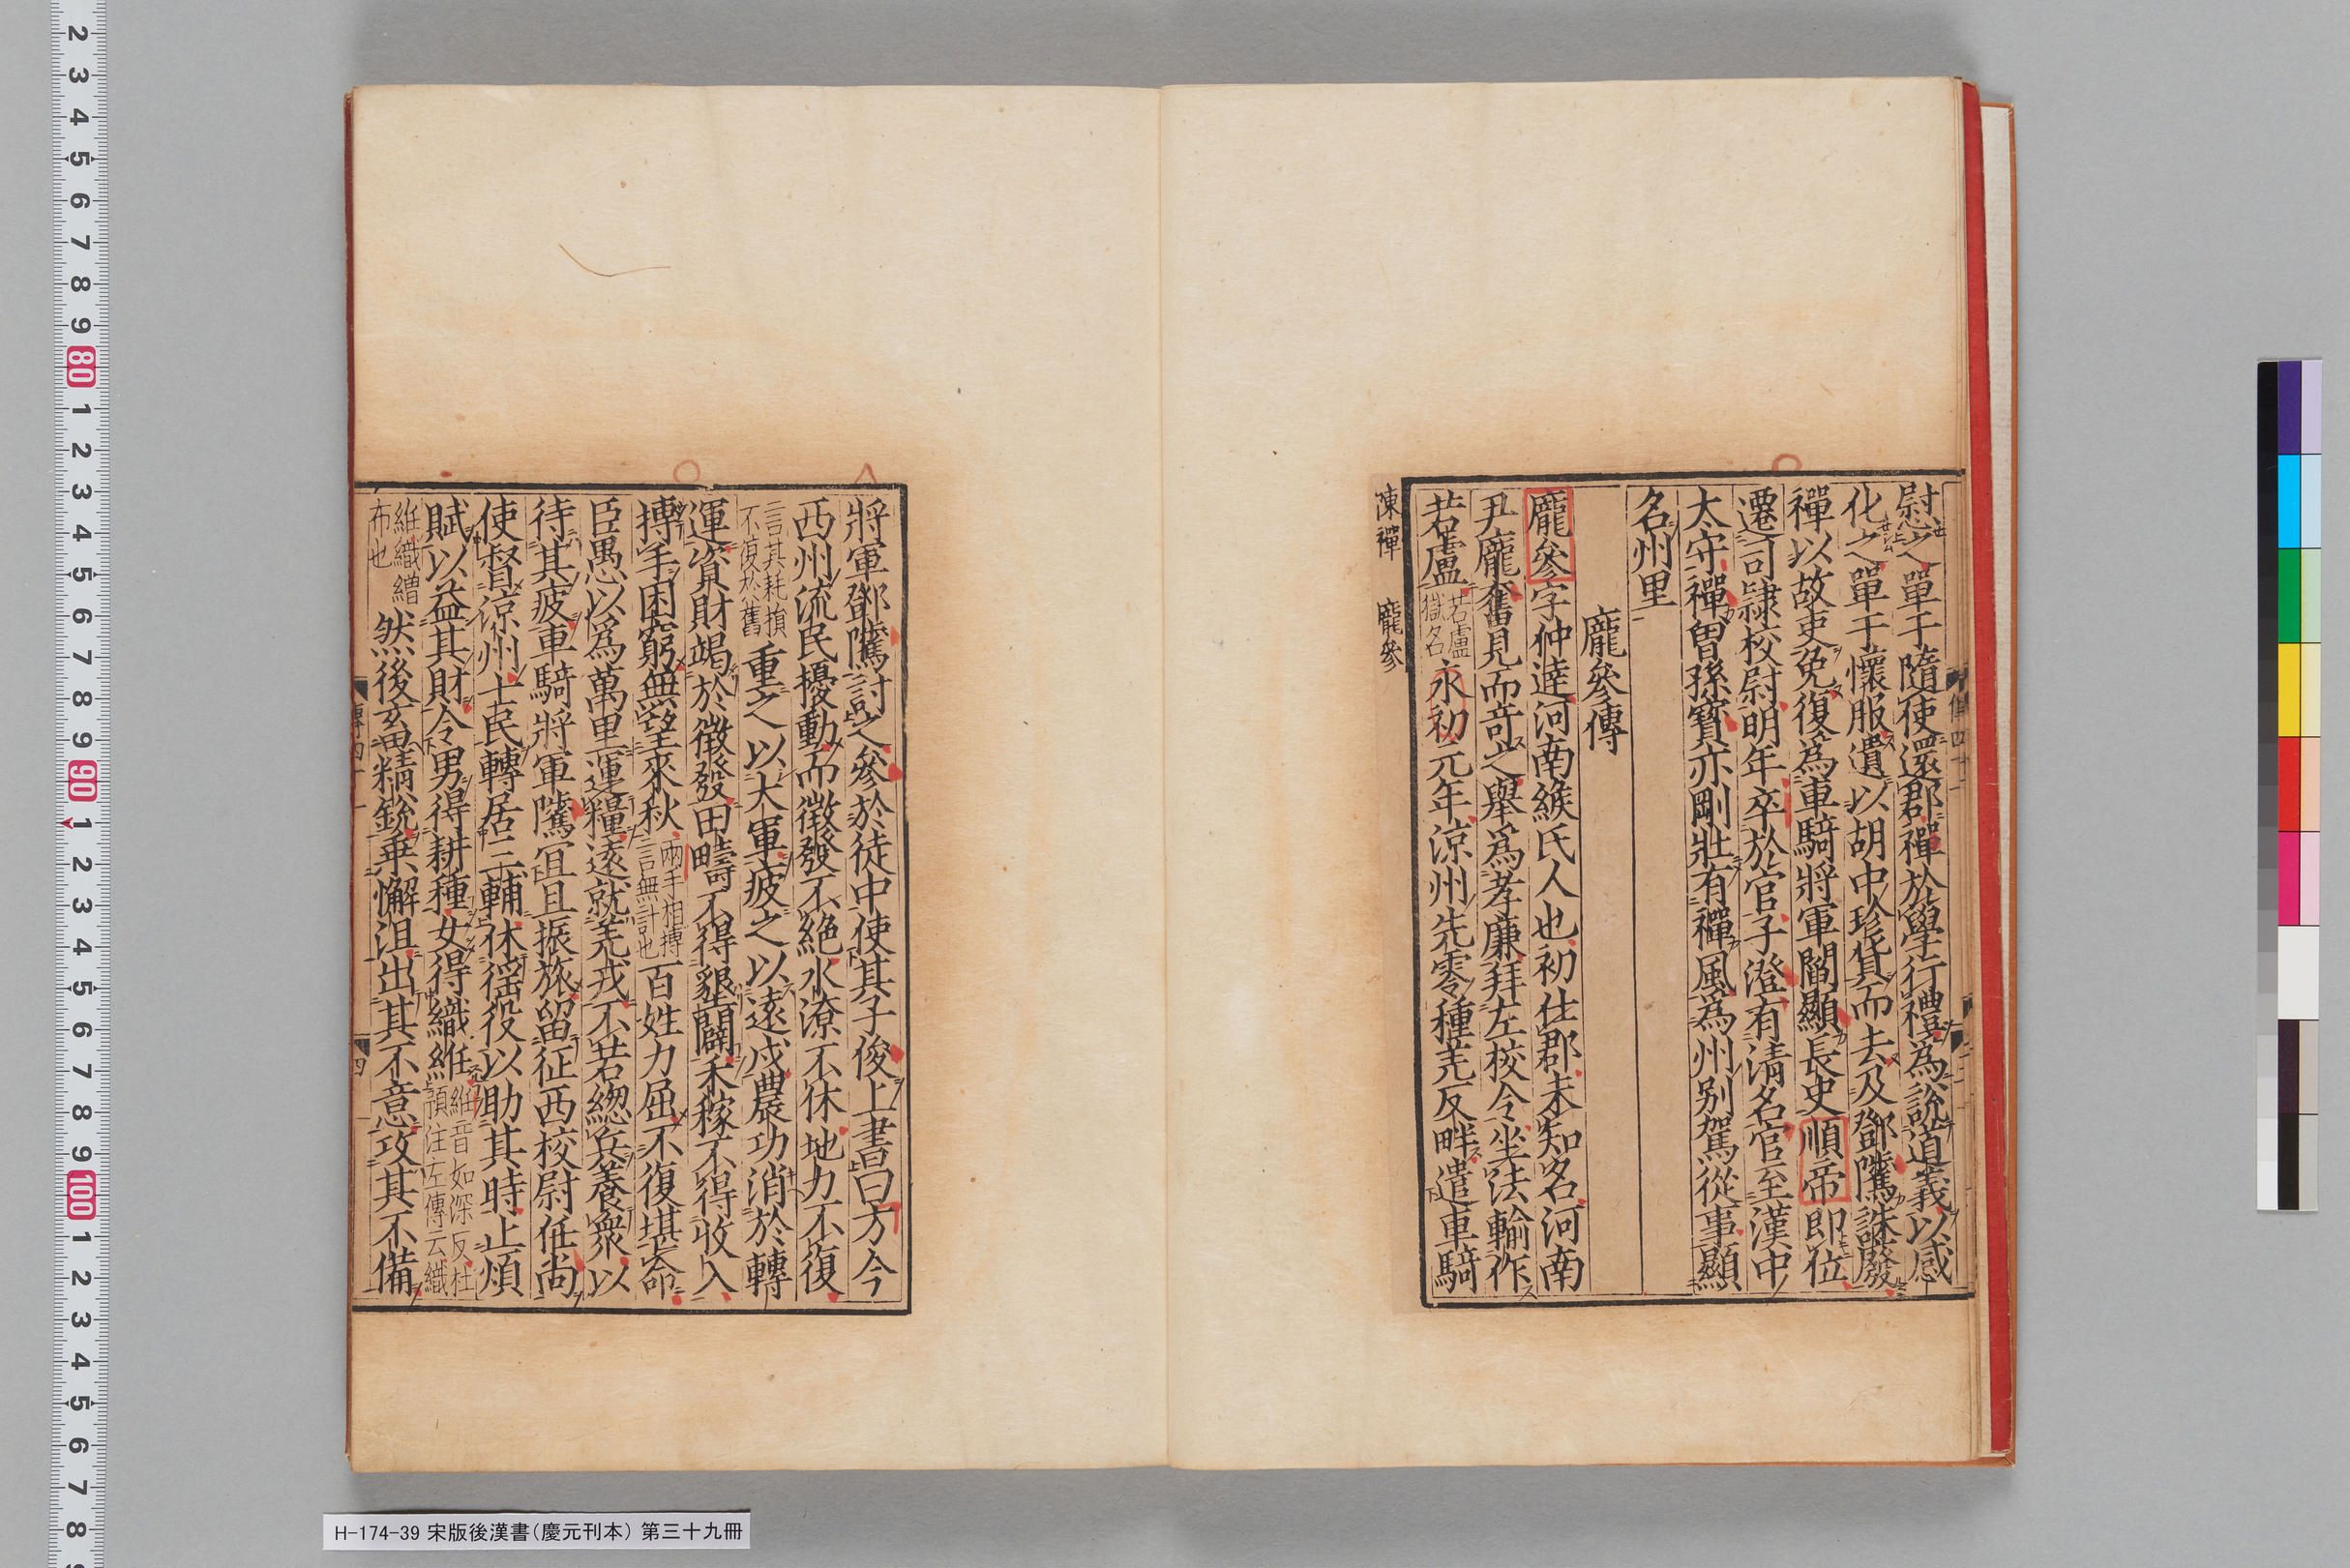 尉慰之單于隨使還郡禪於學行禮爲說道義以感
化之單于懷服遺以胡中珍貨而去及鄧隲誅廢
禪以故吏免復爲車騎將軍閻顯長史順帝即位
遷司隷校尉明年卒於官子澄有清名官至漢中
太守禪曾孫寶亦剛壯有禪風爲州别駕從事顯
名州里
龐參傳
龐參字仲達河南緱氏人也初仕郡未知名河南
尹龐奮見而竒之舉爲孝廉拜左校令坐法輸作
若盧若盧獄名永初元年涼州先零種羌反畔遣車騎
陳禪 龐參
將軍鄧隲討之參於徒中使其子俊上書曰方今
西州流民擾動而徵發不絶水潦不休地力不復
言其耗損不復於舊重之以大軍疲之以遠戍農功消於轉
運資財竭於徵發田疇不得墾闢禾稼不得收入
搏手困窮無望來秋兩手相搏言無計也百姓力屈不復堪命
臣愚以爲萬里運糧遠就羌戎不若緫兵養衆以
待其疲車騎將軍隲宜且振旅留征西校尉任尚
使督涼州士民轉居三輔休徭役以助其時止煩
賦以益其財令男得耕種女得織紝紝音如深反杜預注左傳云織
紝織繒布也然後畜精銳乗懈沮出其不意攻其不備
傳四十一
四
H-174-39 宋版後漢書(慶元刊本) 第三十九冊
2 3 4 5 6 7 8 9 80 1 2 3 4 5 6 7 8 9 90 1 2 3 4 5 6 7 8 9 100 1 2 3 4 5 6 7 8